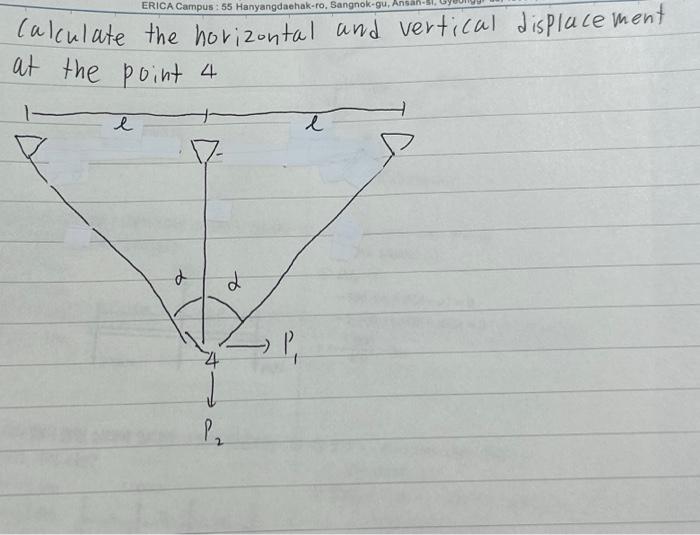 ERICA Campus : 55 Hanyangdaehak-ro, Sangnok-gu, Ansan-si,
Calculate the horizontal and vertical displacement
at the point 4
l l
α α
4 P1
P2